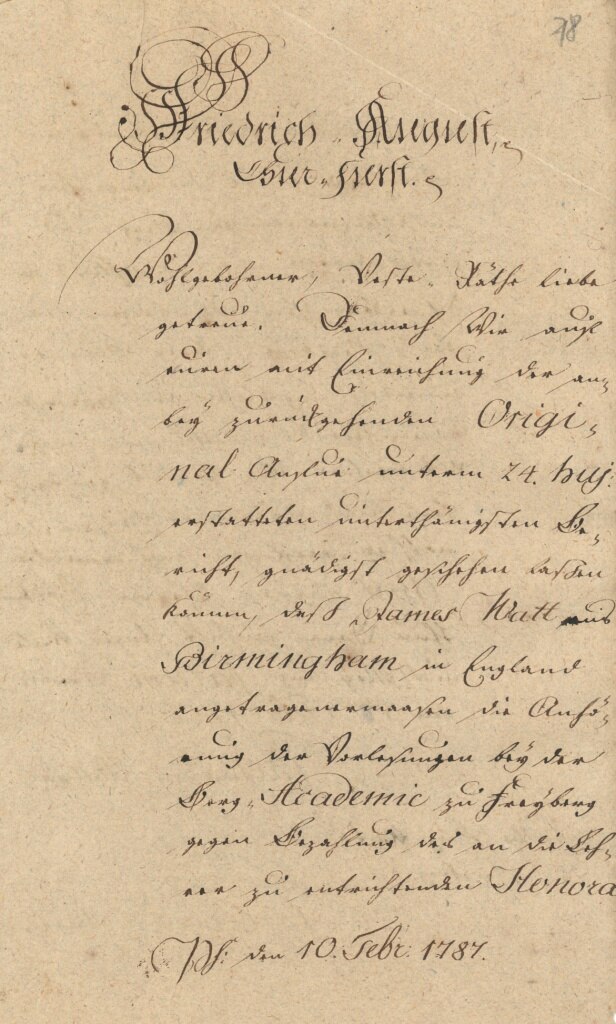 78
Friedrich August,
Chur-Fürst.
Wohlgebohrner, Veste Räthe liebe
getreue. Demnach Wir auf
euren mit Einreichung der an-
bey zurückgehenden Origi-
nal unterm 24. huj:
erstatteten unterthänigsten Be-
richt, gnädigst geschehen lassen
können, daß James Watt aus
Birmingham in England
angetragenermaasen die Anhö-
rung der Vorlesungen bey der
Berg-Academie zu Freyberg
gegen Bezahlung des an die Leh-
rer zu entrichtenden Honora
den 10. Febr. 1787.